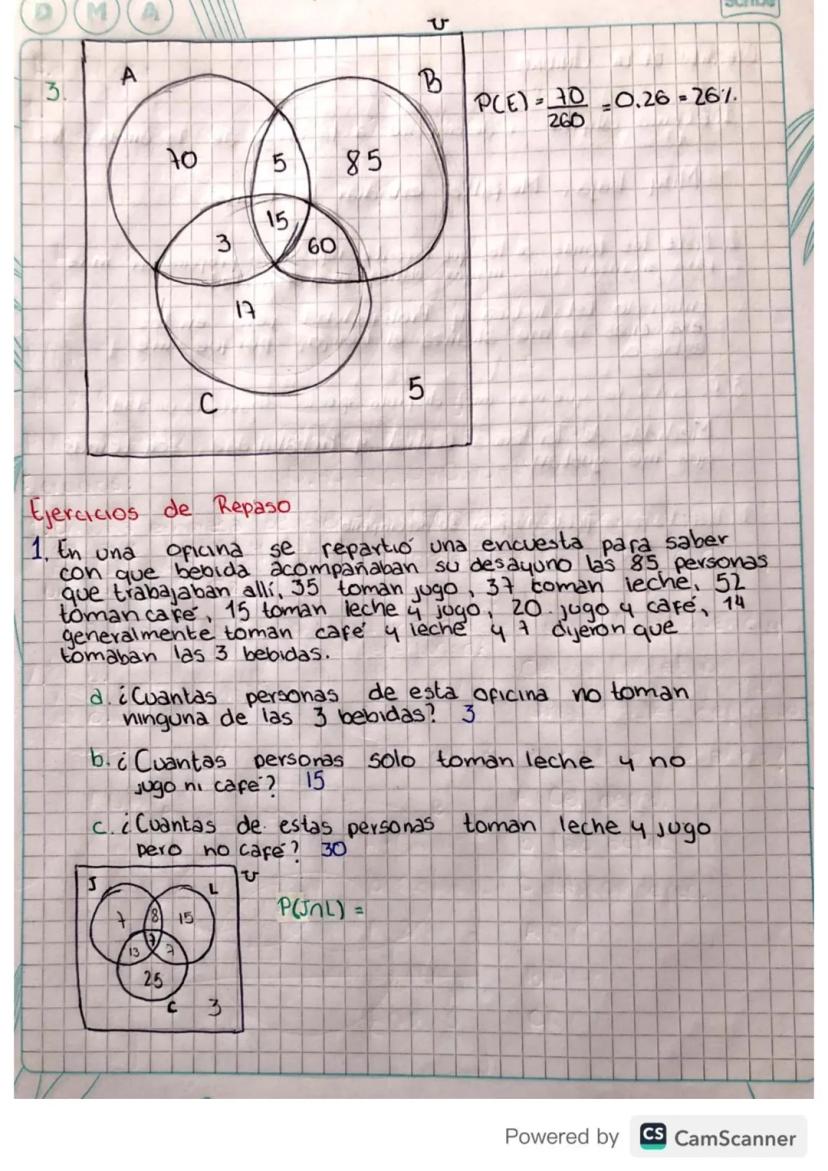 D M A
Scribe
U
3.
A
B
70
5
85
15
3
60
17
C
5
P(E) = 70/260 = 0.26 = 26%.
Ejercicios de Repaso
1. En una oficina se repartió una encuesta para saber
con que bebida acompañaban su desayuno las 85 personas
que trabajaban allí, 35 toman jugo, 37 toman leche, 52
toman café, 15 toman leche y jugo, 20 jugo y café, 14
generalmente toman café y leche y 7 dijeron que
tomaban las 3 bebidas.
a. ¿Cuantas personas de esta oficina no toman
ninguna de las 3 bebidas? 3
b. ¿Cuantas personas solo toman leche y no
jugo ni café? 15
c. ¿Cuantas de estas personas toman leche y jugo
pero no café? 30
U
J
L
7
8
15
7
13
7
25
C
3
P(J∩L) =
Powered by CS CamScanner